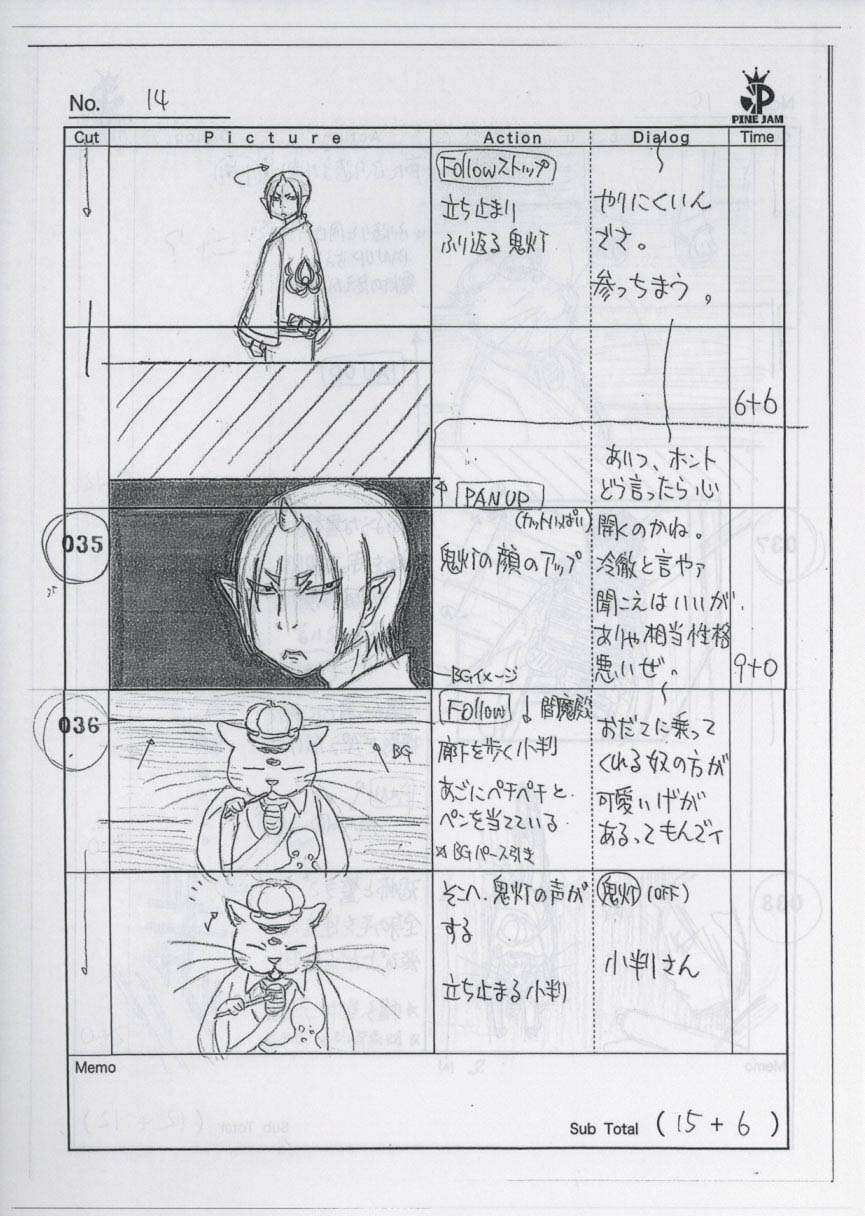 No. 14
PINE JAM
Cut Picture Action Dialog Time
Followストップ
立ち止まり
ふり返る鬼灯
やりにくいん
でさ。
参っちまう。
6+6
あいつ、ホント
どう言ったら心
開くのかね。
冷徹と言やァ
聞こえはいいが、
ありゃ相当性格
悪いぜ。
035
PAN UP
(カットいっぱい)
鬼灯の顔のアップ
BGイメージ
9+0
036
BG
Follow 閻魔殿
廊下を歩く小判
あごにペチペチと
ペンを当てている
※BGパース引き
おだてに乗って
くれる奴の方が
可愛いげが
あるってもんでィ
そこへ、鬼灯の声が
する
立ち止まる小判
鬼灯(OFF)
小判さん
Memo
Sub Total (15+6)